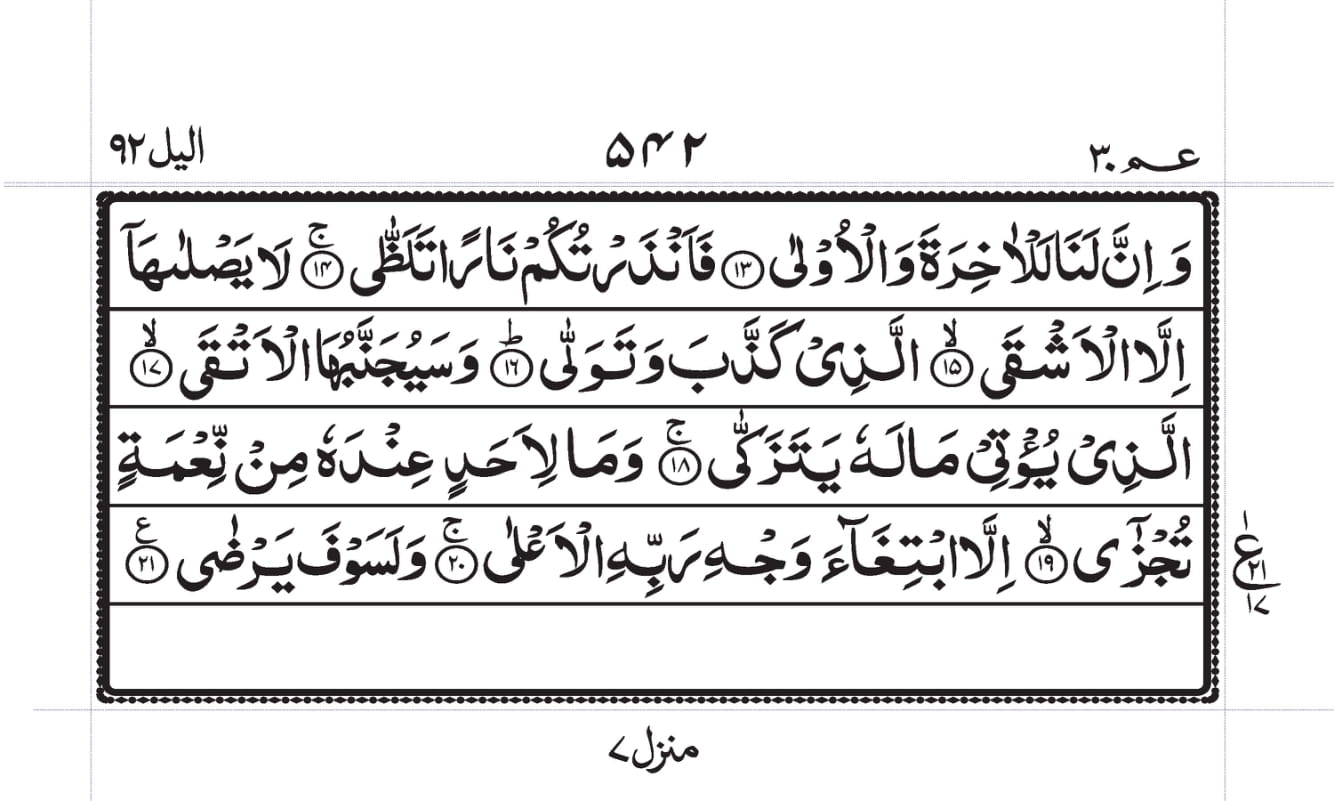 عـم ٣٠ ۵۴۲ الیل ٩٢
وَ اِنَّ لَنَا لَلْاٰخِرَةَ وَ الْاُوْلٰى ۝١٣ فَاَنْذَرْتُكُمْ نَارًا تَلَظّٰى ۝١٤ۚ لَا یَصْلٰىهَاۤ
اِلَّا الْاَشْقَى ۝١٥ۙ الَّذِیْ كَذَّبَ وَ تَوَلّٰى ۝١٦ؕ وَ سَیُجَنَّبُهَا الْاَتْقَى ۝١٧ۙ
الَّذِیْ یُؤْتِیْ مَالَهٗ یَتَزَكّٰى ۝١٨ۚ وَ مَا لِاَحَدٍ عِنْدَهٗ مِنْ نِّعْمَةٍ
تُجْزٰۤى ۝١٩ۙ اِلَّا ابْتِغَآءَ وَجْهِ رَبِّهِ الْاَعْلٰى ۝٢٠ۚ وَ لَسَوْفَ یَرْضٰى ۝٢١ع
١
ع ٢١
١٧
منزل ٧